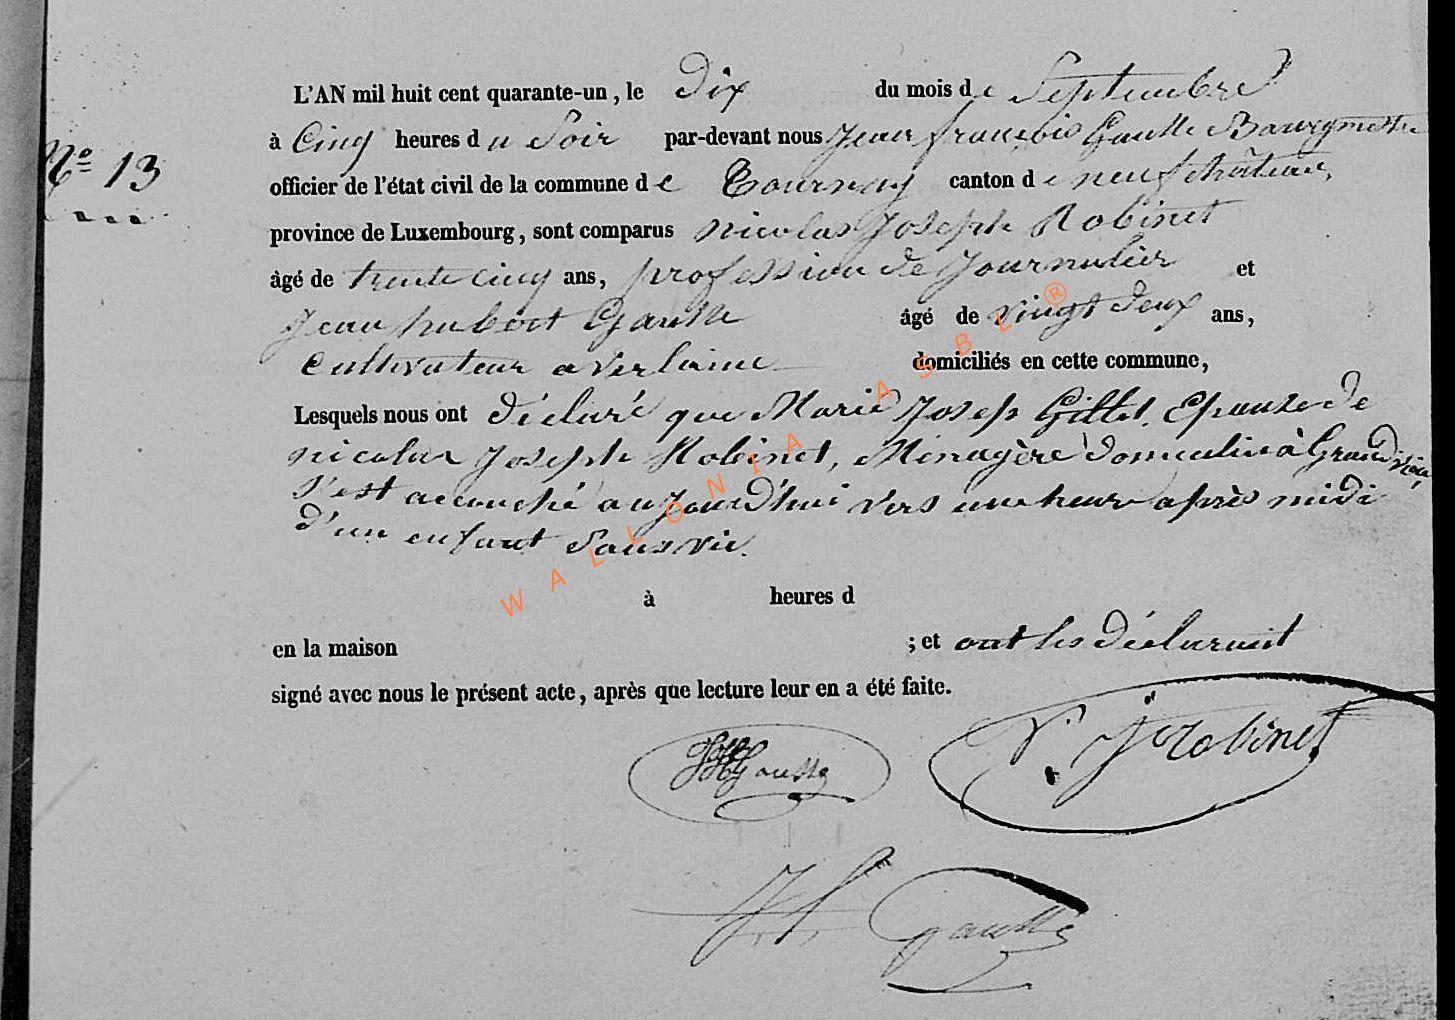 L'AN mil huit cent quarante-un, le Dix du mois de Septembre
à Cinq heures du Soir par-devant nous Jean françois Gaulle Bourgmestre
N° 13
officier de l'état civil de la commune de Tournay canton de neufchâteau,
province de Luxembourg, sont comparus nicolas Joseph Robinet
âgé de trente cinq ans, profession de Journalier et
Jean hubert Gaulle âgé de vingt deux ans,
Cultivateur a verlaine domiciliés en cette commune,
Lesquels nous ont déclaré que Marie Joseph Gillet, Epouse de
nicolas Joseph Robinet, Ménagère domiciliée à Grandvoir,
s'est accouché aujourd'hui vers une heure après midi
d'un enfant Sans vie.
à heures d
en la maison ; et ont les déclarant
signé avec nous le présent acte, après que lecture leur en a été faite.
N. J. Robinet
Gaulle
J f Gaulle
WALLONIA ASBL ®